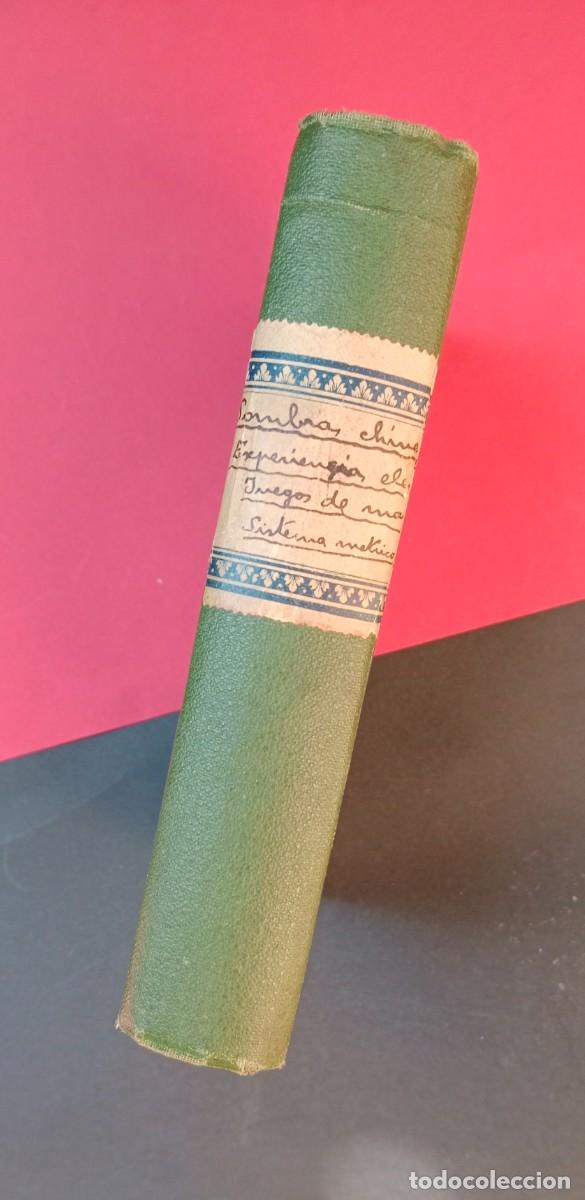 Sombras chine
Experiencias ele
Juegos de ma
Sistema metrico
todocoleccion